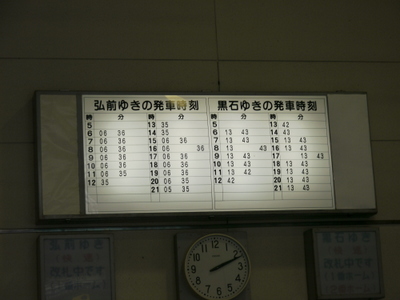 弘前ゆきの発車時刻
時 分 時 分
5 13 35
6 06 36 14 35
7 06 36 15 06 36
8 06 36 16 06 36
9 06 36 17 06 36
10 06 36 18 06 36
11 06 35 19 06 36
12 35 20 06 35
21 05 35
黒石ゆきの発車時刻
時 分 時 分
5 13 42
6 13 43 14 43
7 13 43 15 13 43
8 13 43 16 13 43
9 13 43 17 13 43
10 13 43 18 13 43
11 13 42 19 13 43
12 42 20 13 43
21 13 43
弘前ゆき
改札中です
黒石ゆき
改札中です